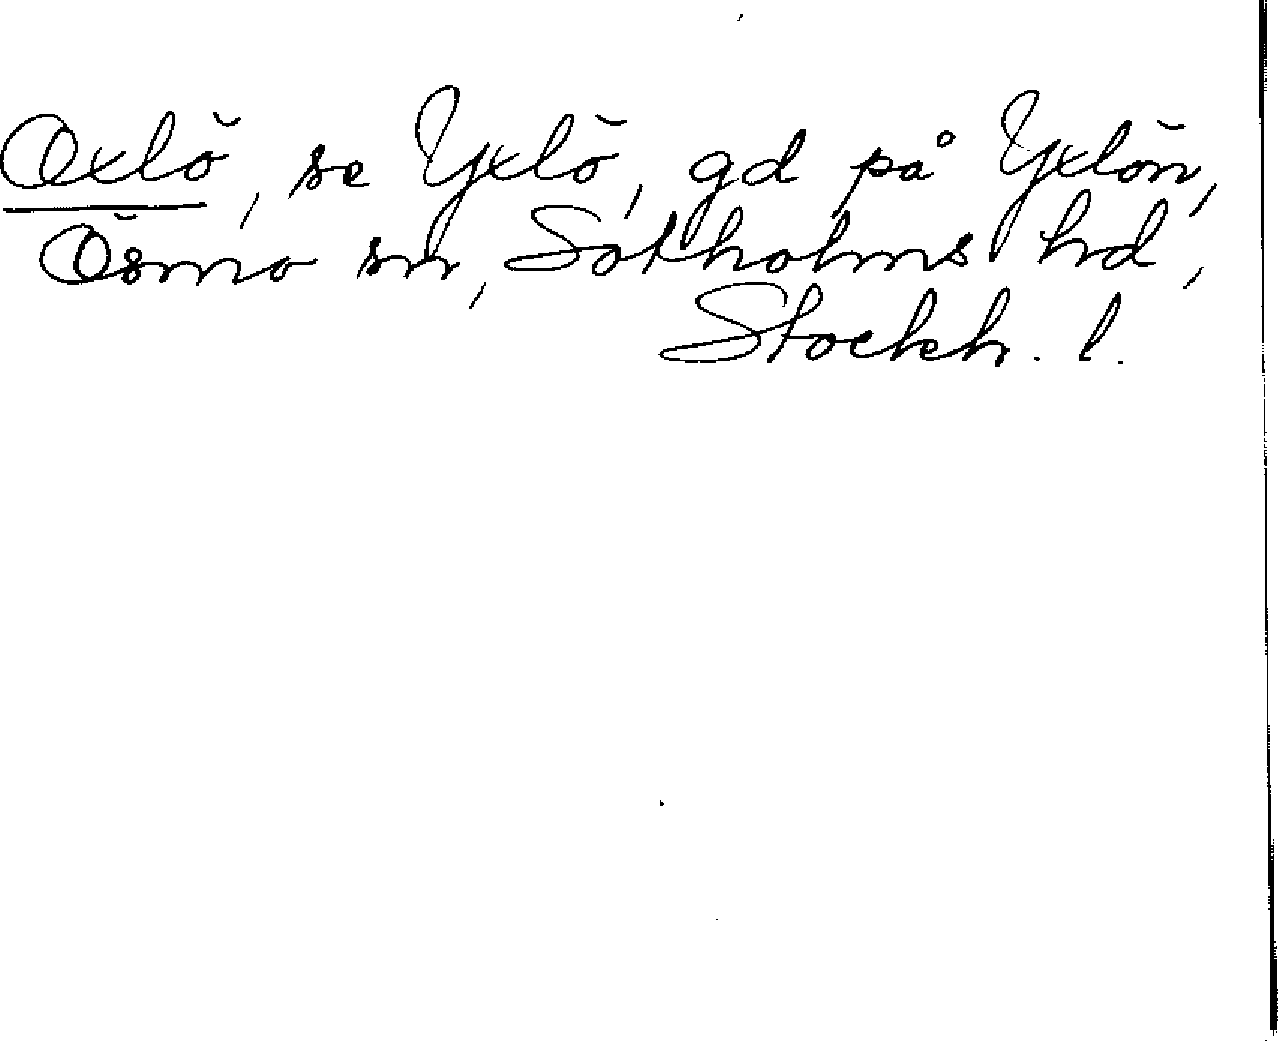 Oxlö, se Yxlö, gd på Yxlön,
Ösmo sn, Sotholms hd,
Stockh. l.